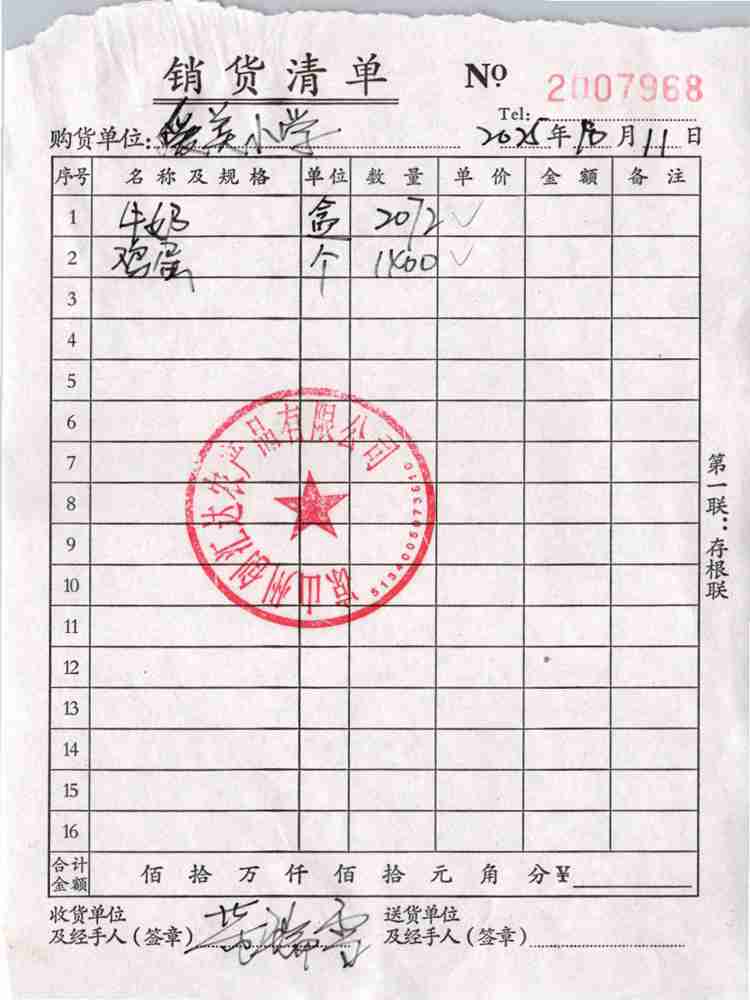 销货清单 Nº 2007968
Tel:
购货单位: 美小学 2025年10月11日
序号 名称及规格 单位 数量 单价 金额 备注
1 牛奶 盒 2072 ✓
2 鸡蛋 个 1400 ✓
3
4
5
6
7
8
9
10
11
12
13
14
15
16
凉山州创汇达农产品有限公司
第一联：存根联
合计金额 佰拾万仟佰拾元角分¥
收货单位
及经手人(签章)
送货单位
及经手人(签章)